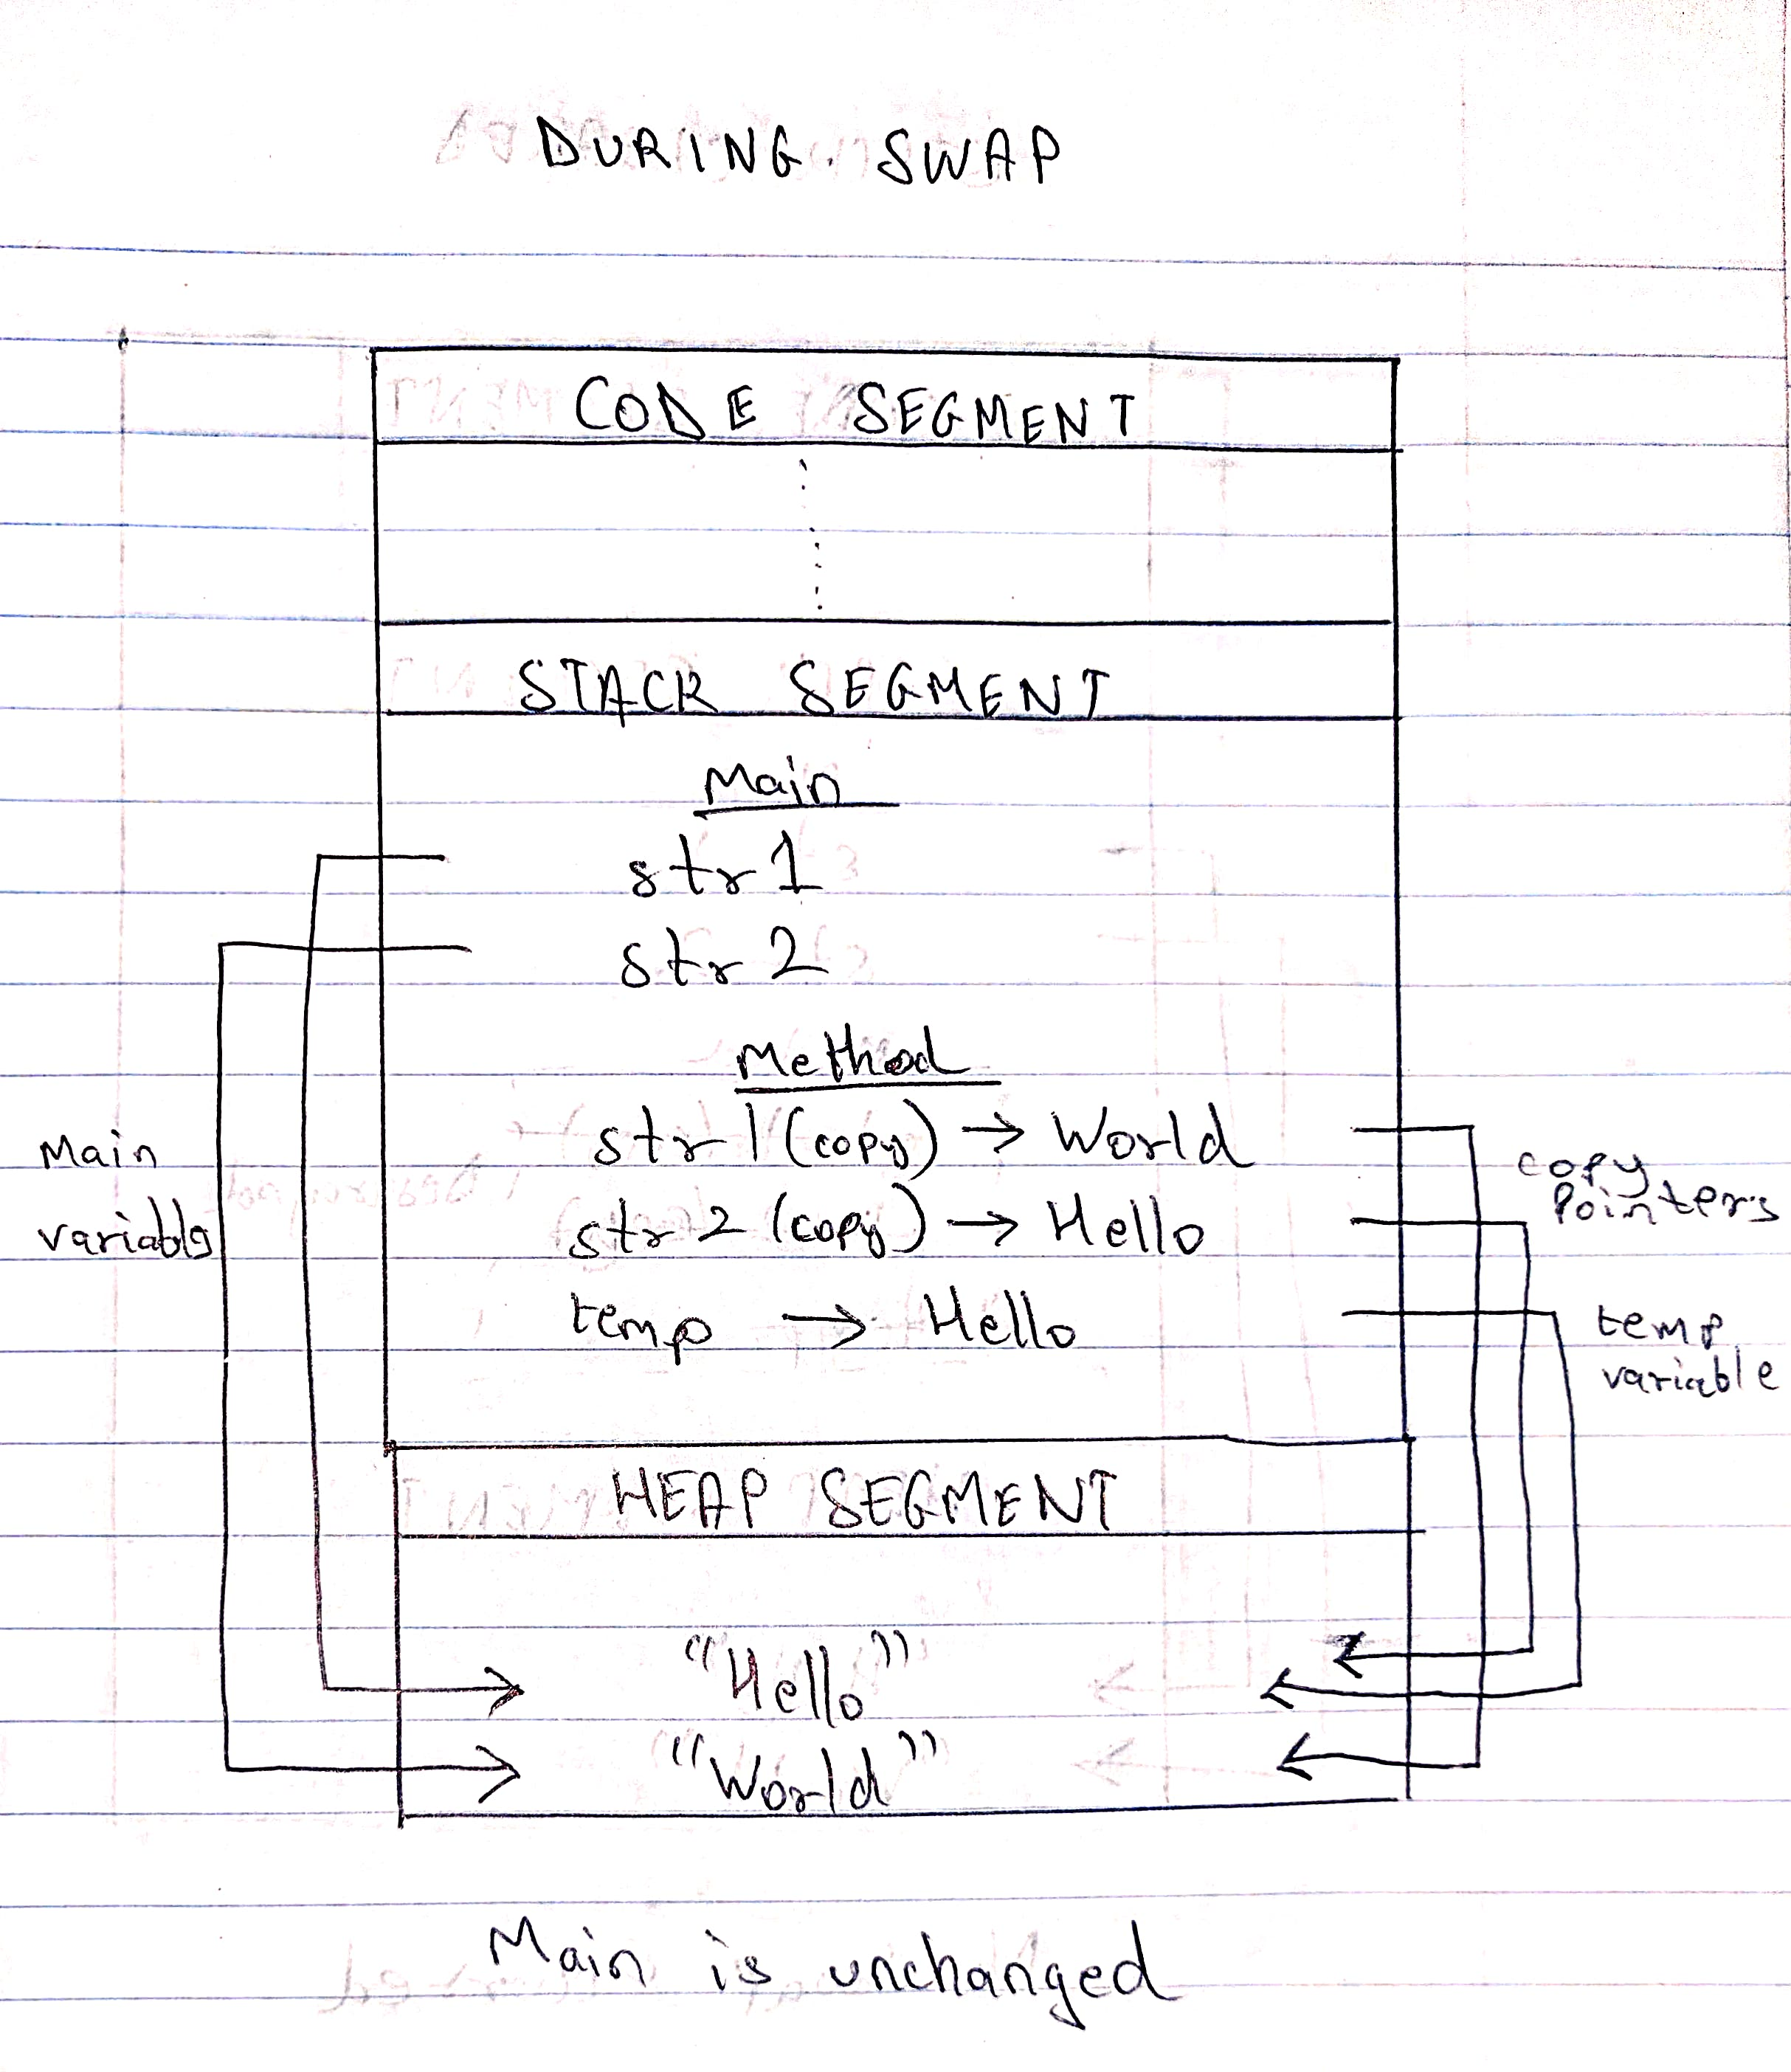 DURING SWAP
CODE SEGMENT
STACK SEGMENT
Main
str 1
str 2
Method
str 1 (copy) → World
str 2 (copy) → Hello
temp → Hello
Main
variable
copy
Pointers
temp
variable
HEAP SEGMENT
"Hello"
"World"
Main is unchanged